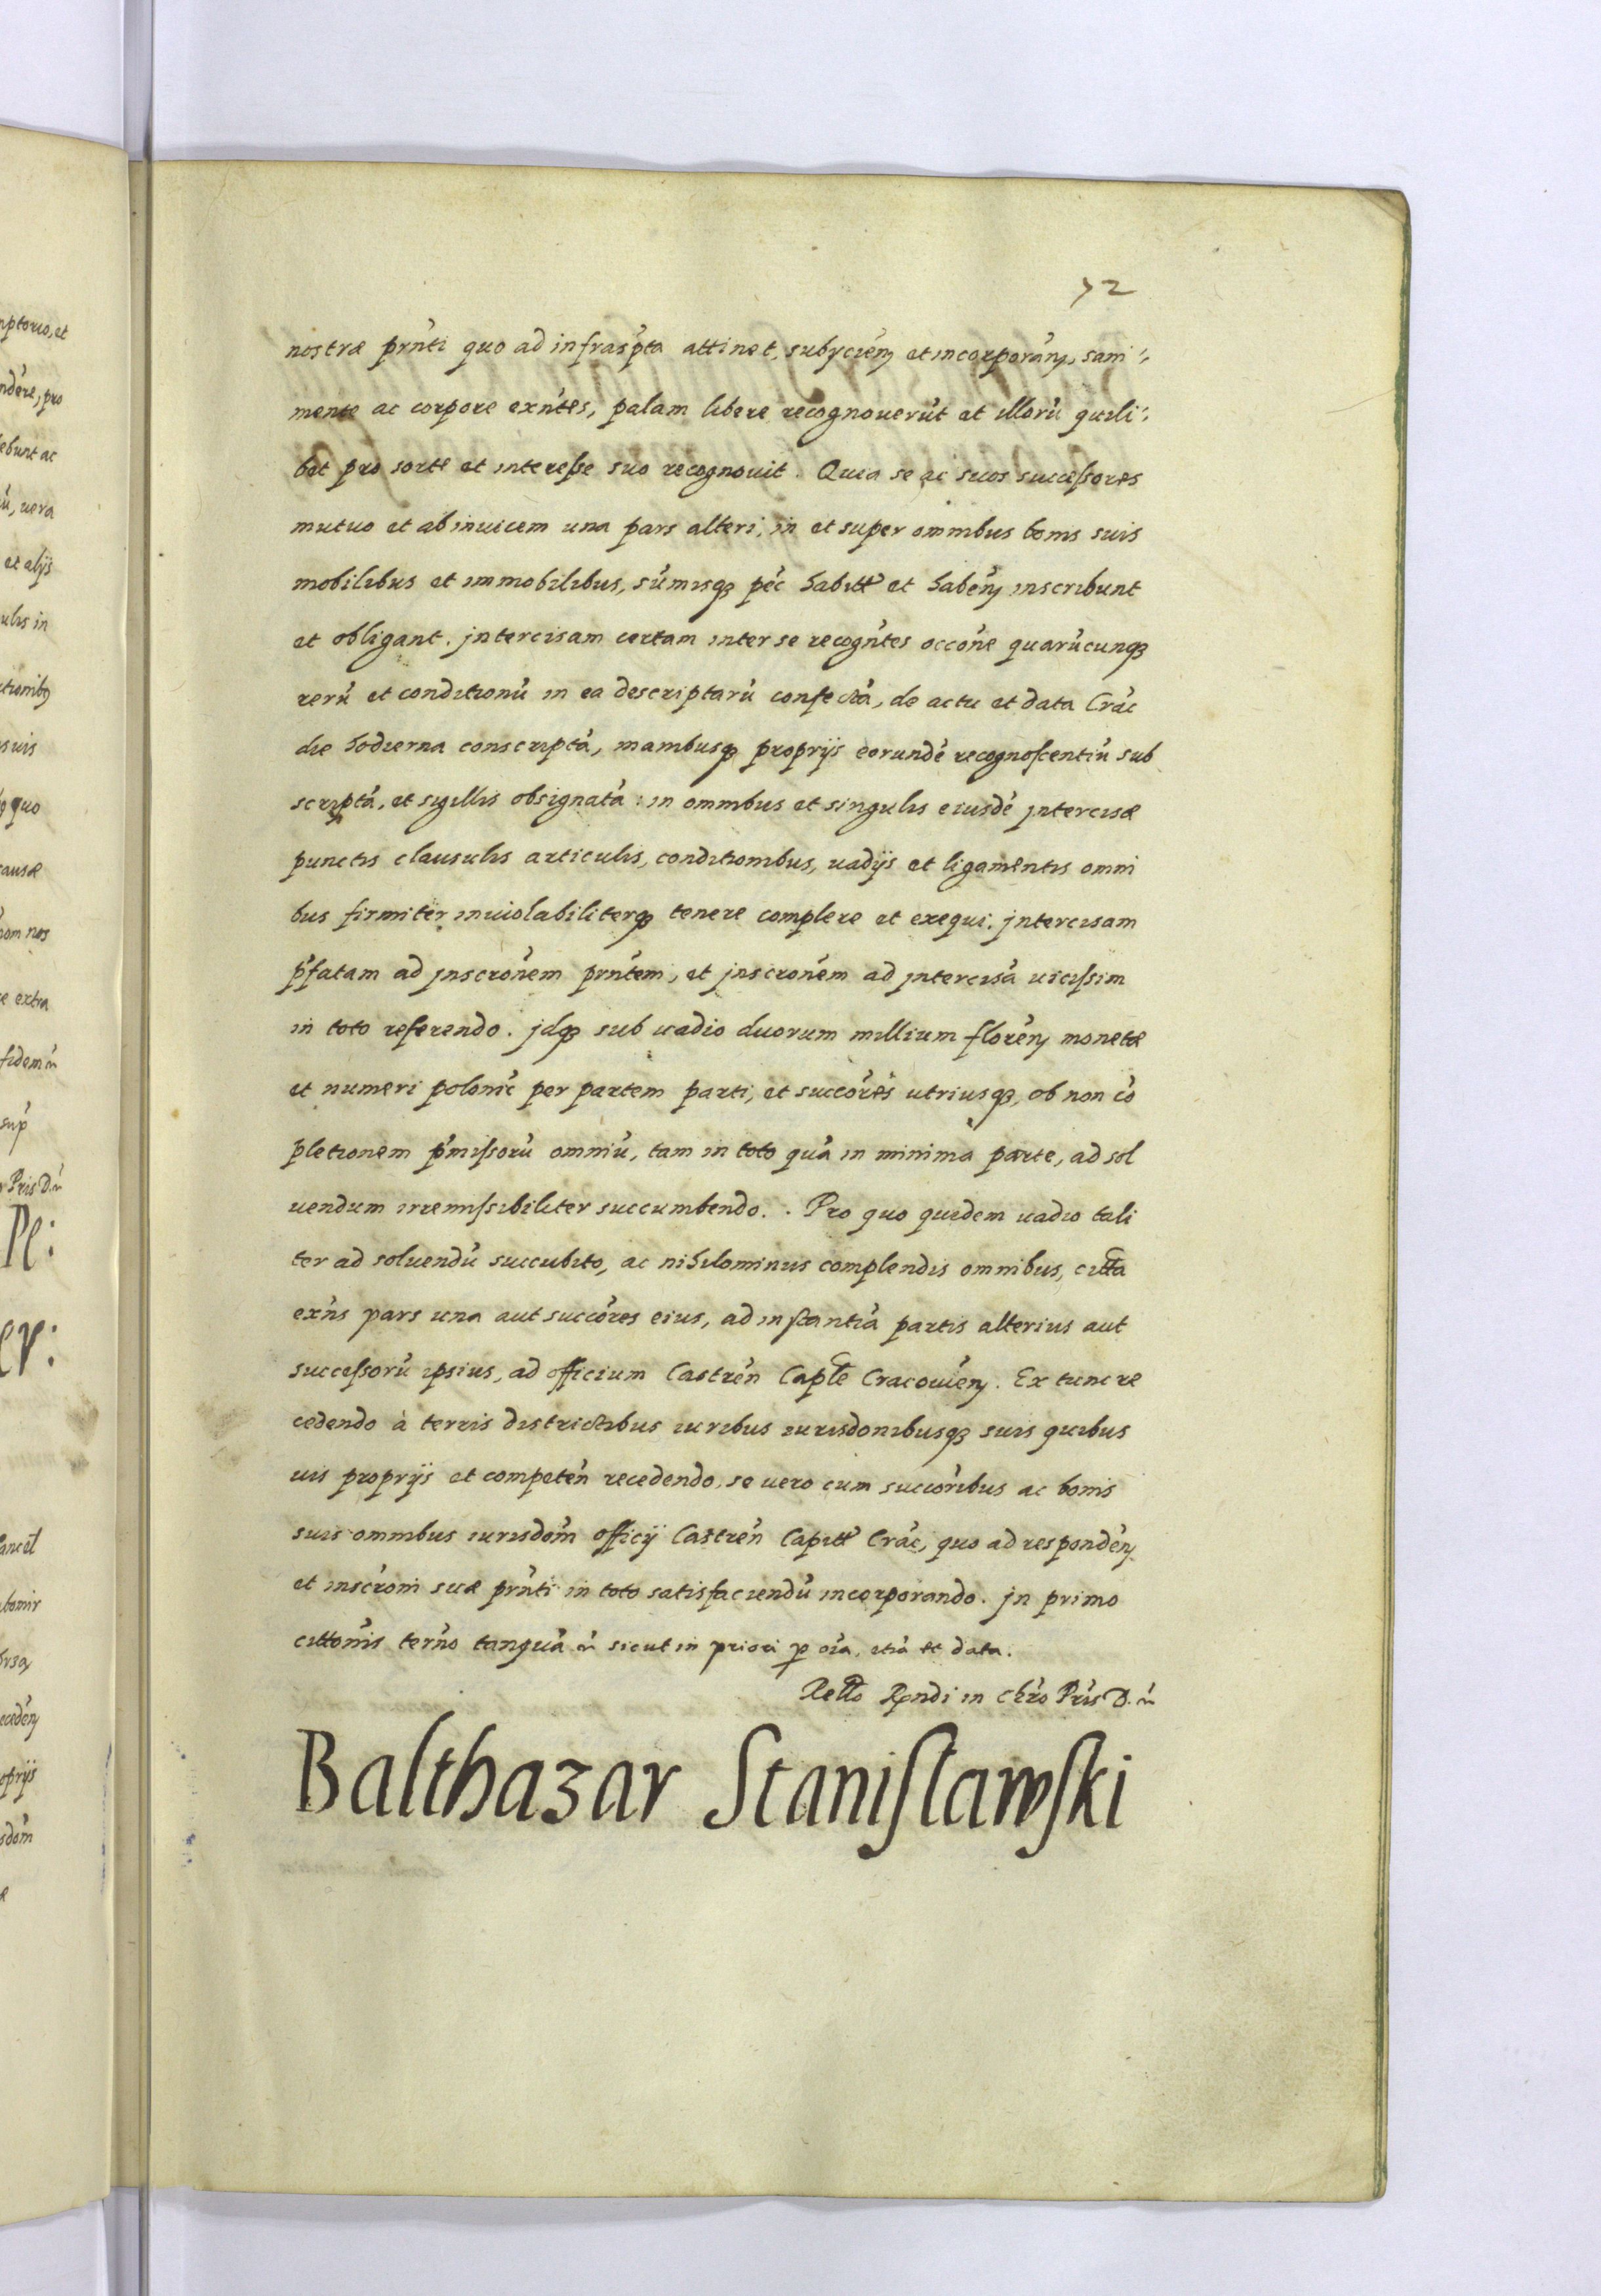 72
nostræ prn̄ti quo ad infrasp̄ta attinet, subyciēn et incorporān, sani
mente ac corpore exn̄tes, palam libere recognouerūt et illorū quili
bet pro sorte et interesse suo recognouit. Quia se ac suos successores
mutuo et ab inuicem una pars alteri, in et super omnibus bonis suis
mobilibus et immobilibus, sūmisq3 pēc habitt et habēn inscribunt
et obligant. jntercisam certam inter se recogn̄tes occōne quarūcunq3
rerū et conditionū in ea descriptarū confectā, de actu et data Crāc
die hodierna conscriptā, manibusq3 proprijs eorundē recognoscentiū sub
scriptā, et sigillis obsignatā : in omnibus et singulis eiusdē jntercisæ
punctis clausulis articulis, conditionibus, uadijs et ligamentis omni
bus firmiter inuiolabiliterq3 tenere complere et exequi. jntercisam
p̄fatam ad jnscrōnem prn̄tem, et jnscrōnem ad jntercisā uicissim
in toto referendo. jdq3 sub uadio duorum millium florēn monetæ
et numeri polonīc per partem parti, et succōrēs utriusq3, ob non cō
pletionem p̄missorū omniū, tam in toto quā in minima parte, ad sol
uendum irremissibiliter succumbendo. Pro quo quidem uadio tali
ter ad soluendū succubito, ac nihilominus complendis omnibus, citta
exn̄s pars una aut succōres eius, ad instantiā partis alterius aut
successorū ipsius, ad officium Castrēn Caplē Cracouiēn. Ex tunc re
cedendo à terris districtibus iuribus iurisdonibusq3 suis quibus
uis proprijs et competēn recedendo, se uero cum succōribus ac bonis
suis omnibus iurisdom̄ officij Castrēn Capitt Crāc, quo ad respondēn
et inscrōni suæ prn̄ti in toto satisfaciendū incorporando. jn primo
cittonīs tern̄o tanquā sicut in priori p oīa, etiā et data.
Retto Rndi in Chr̄o Prīs D.
Balthazar Stanislawski